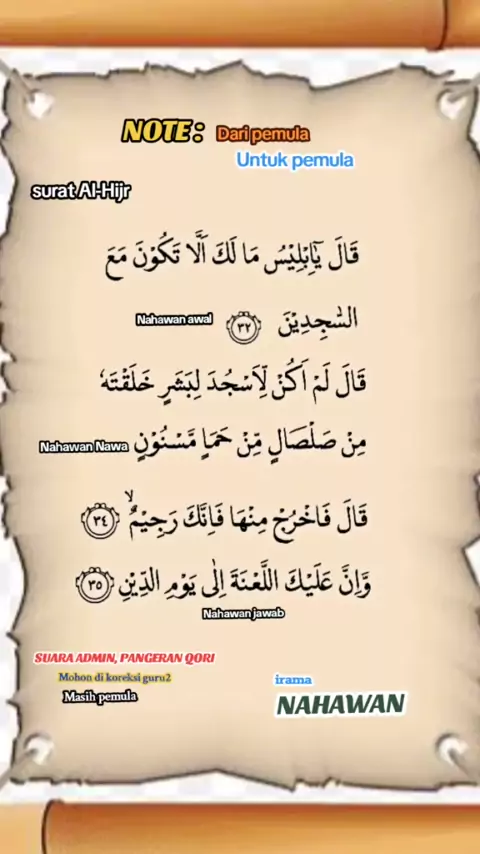 NOTE : Dari pemula
Untuk pemula
surat Al-Hijr
قَالَ يٰٓاِبْلِيْسُ مَا لَكَ اَلَّا تَكُوْنَ مَعَ
السّٰجِدِيْنَ ٣٢ Nahawan awal
قَالَ لَمْ اَكُنْ لِّاَسْجُدَ لِبَشَرٍ خَلَقْتَهٗ
مِنْ صَلْصَالٍ مِّنْ حَمَاٍ مَّسْنُوْنٍ Nahawan Nawa
قَالَ فَاخْرُجْ مِنْهَا فَاِنَّكَ رَجِيْمٌۙ ٣٤
وَّاِنَّ عَلَيْكَ اللَّعْنَةَ اِلٰى يَوْمِ الدِّيْنِ ٣٥
Nahawan jawab
SUARA ADMIN, PANGERAN QORI
Mohon di koreksi guru2
Masih pemula
irama
NAHAWAN